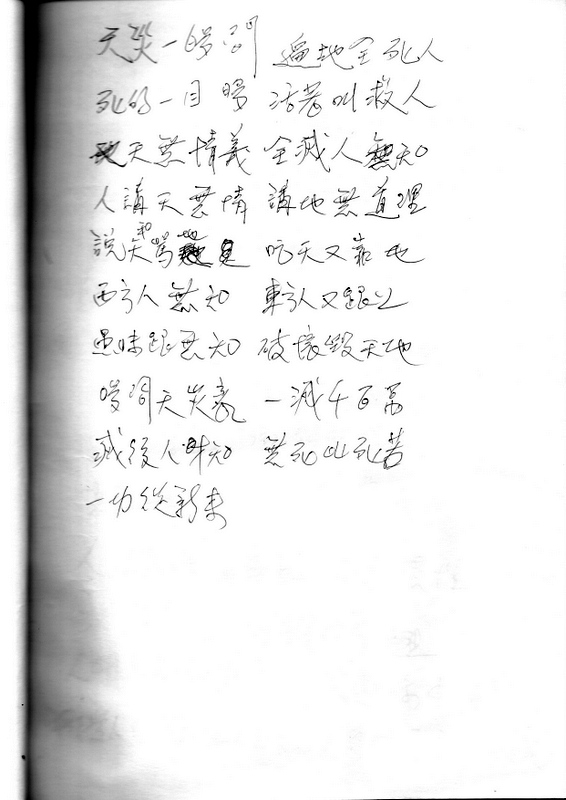 天災一瞬間 遍地全死人
死的一目瞬 活着叫救人
天無情義 全滅人無知
人講天無情 講地無道理
說天和罵地 吃天又靠地
西方人無知 東方人又跟上
愚昧跟無知 破壞毀天地
瞬間天災衰 一滅千百萬
滅後人味知 無死叫死苦
一切從新來